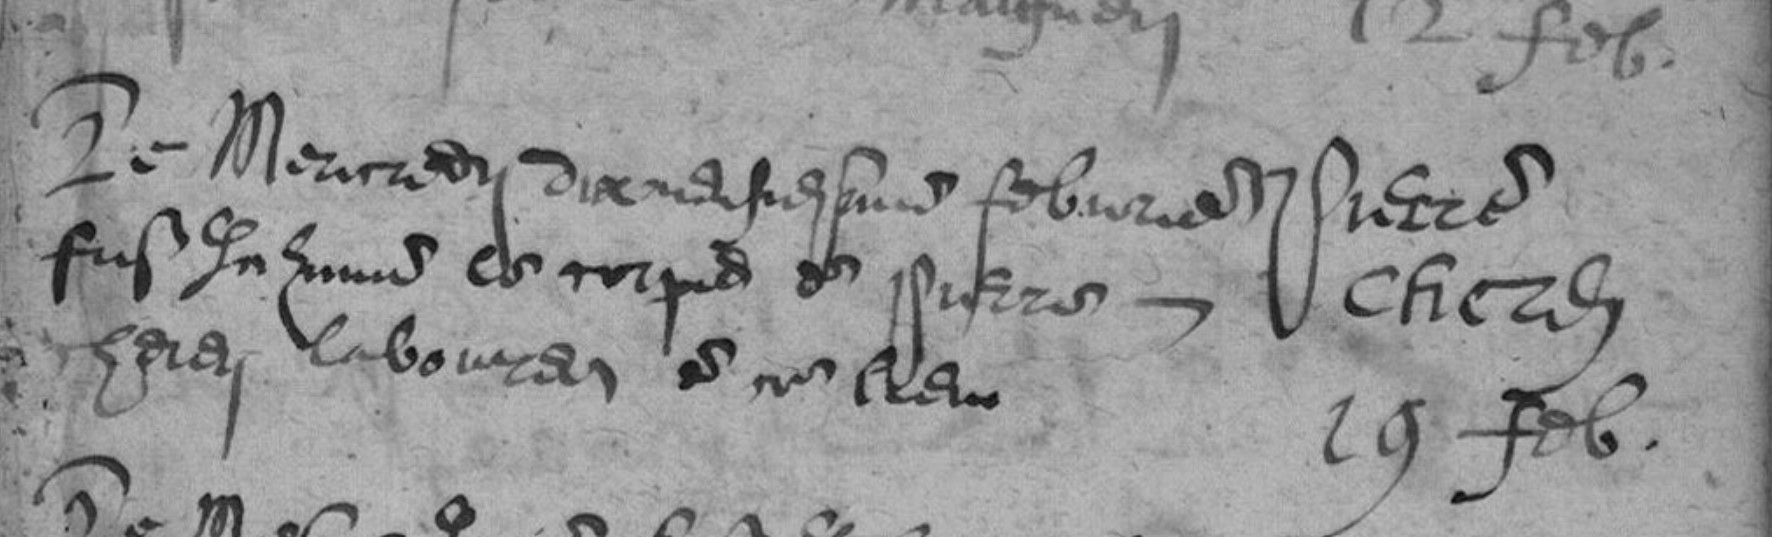 12 feb.
Le Mercredy dixneufiesme feburier
fust inhumé le corps de Pierre
cherey laboureur de ce lieu
Pierre
Cherey
19 feb.